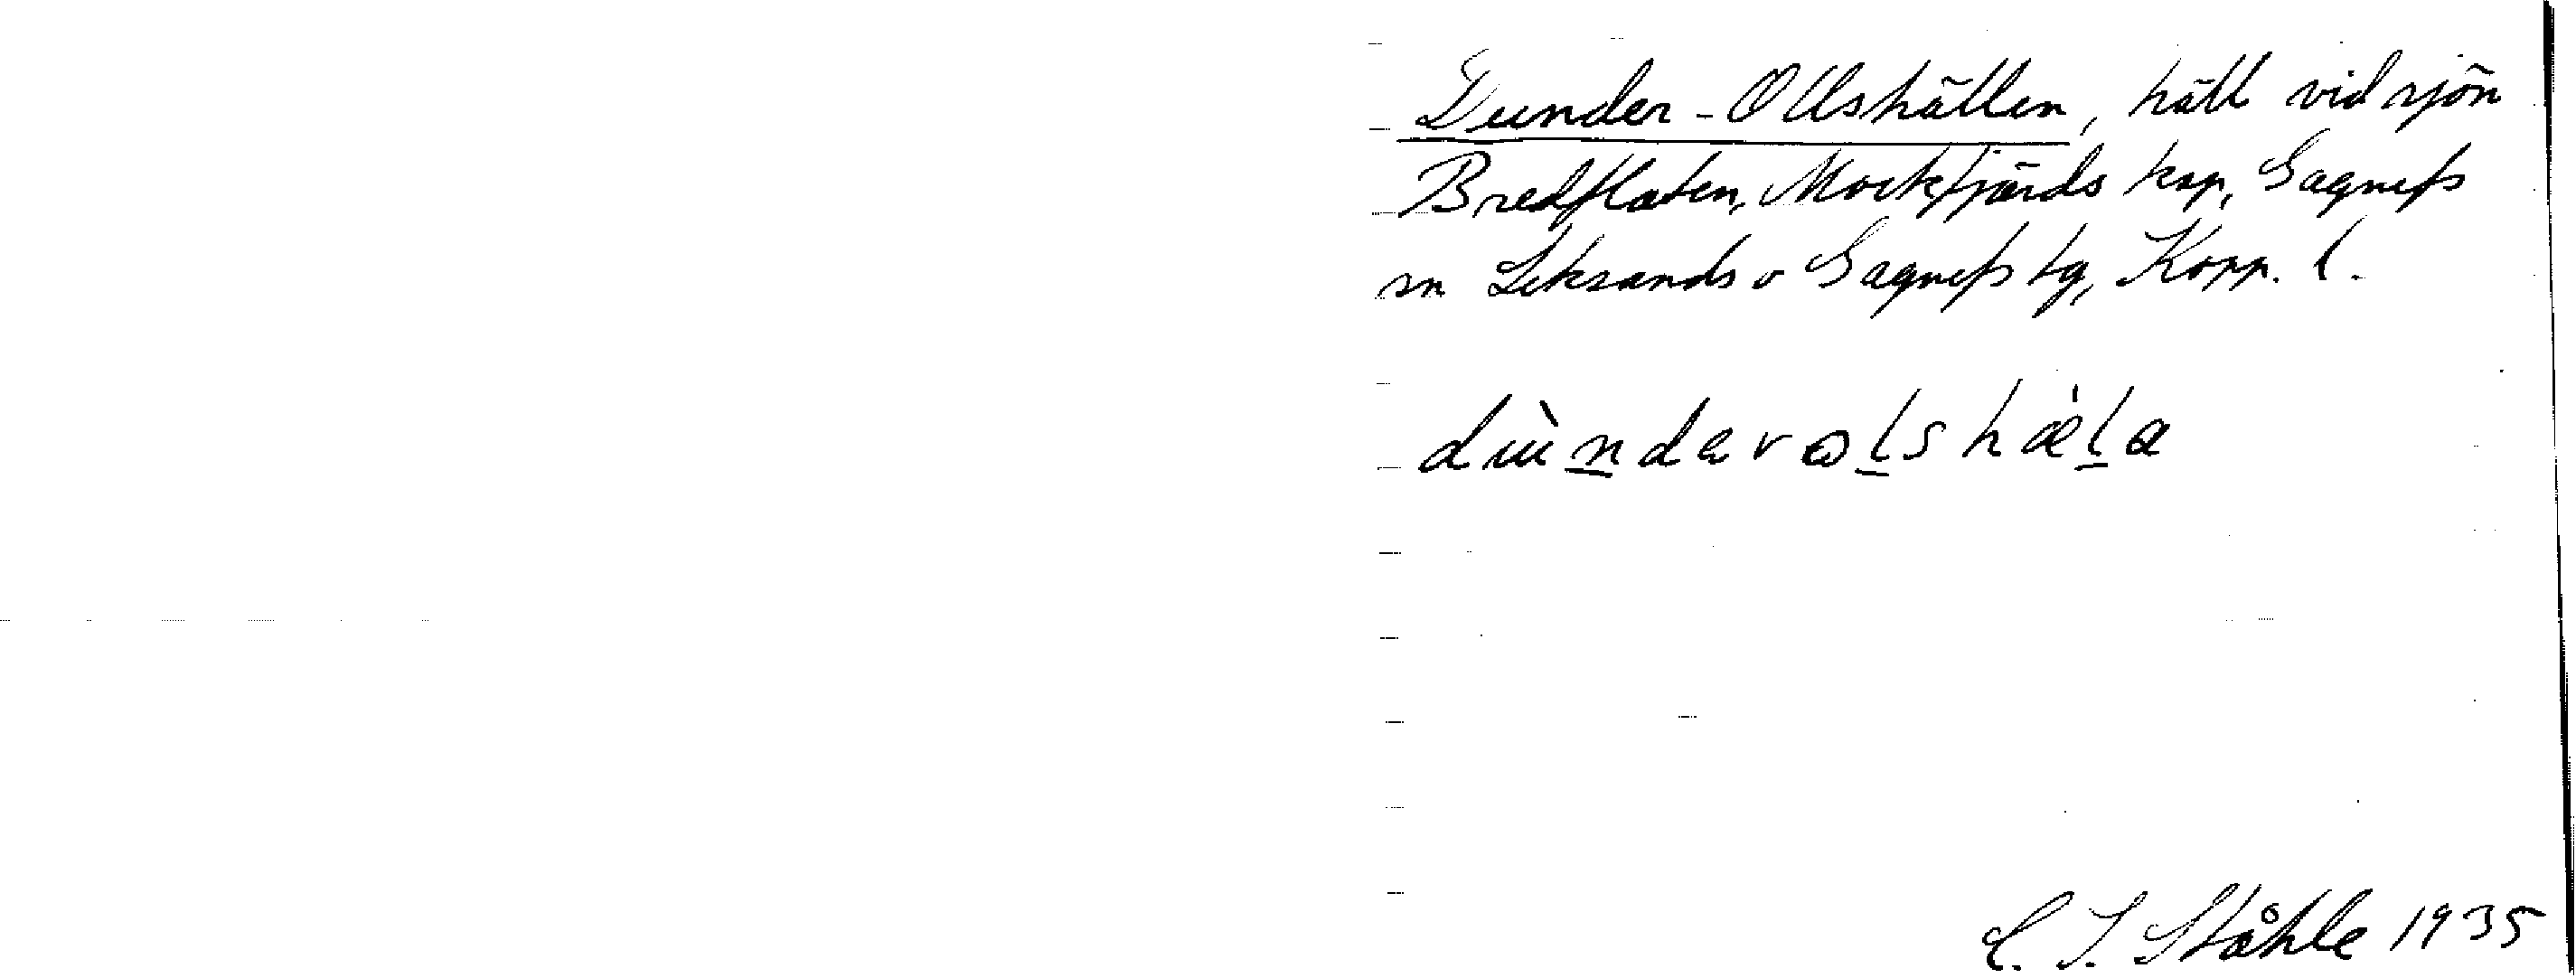 Dunder-Ollshällen, häll vid sjön
Bredflaten, Mockfjärds kap, Gagnefs
sn Leksands o Gagnefs tg, Kopp. l.
dùndervolshæla
C. I. Ståhle 1935